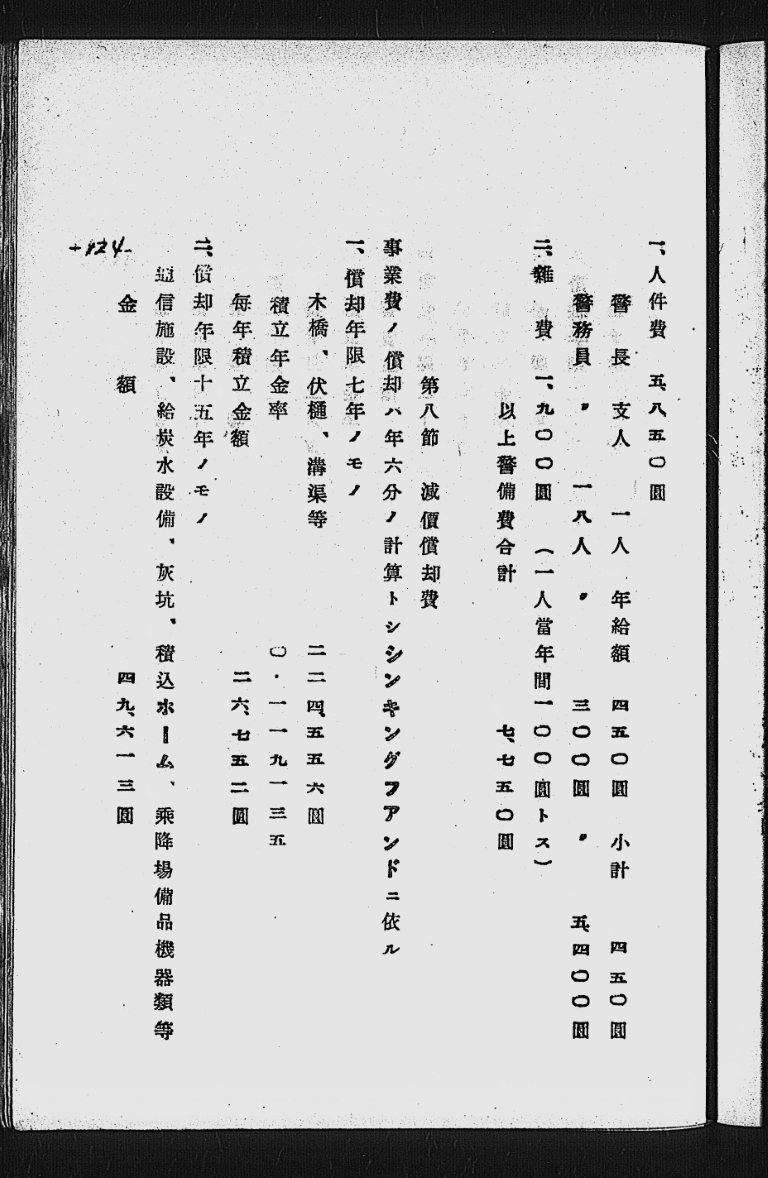 一、人件費 五、八五〇圓
警長 支人 一人 年給額 四五〇圓 小計 四五〇圓
警務員 〃 一八人 〃 三〇〇圓 〃 五、四〇〇圓
二、雜費 一、九〇〇圓 （一人當年間一〇〇圓トス）
以上警備費合計 七、七五〇圓
第八節 減價償却費
事業費ノ償却ハ年六分ノ計算トシシンキングフアンドニ依ル
一、償却年限七年ノモノ
木橋、伏樋、溝渠等 二二四、五五六圓
積立年金率 〇・一一九一三五
每年積立金額 二六、七五二圓
二、償却年限十五年ノモノ
通信施設、給炭水設備、灰坑、積込ホーム、乘降場備品機器類等
金額 四九、六一三圓
-124-